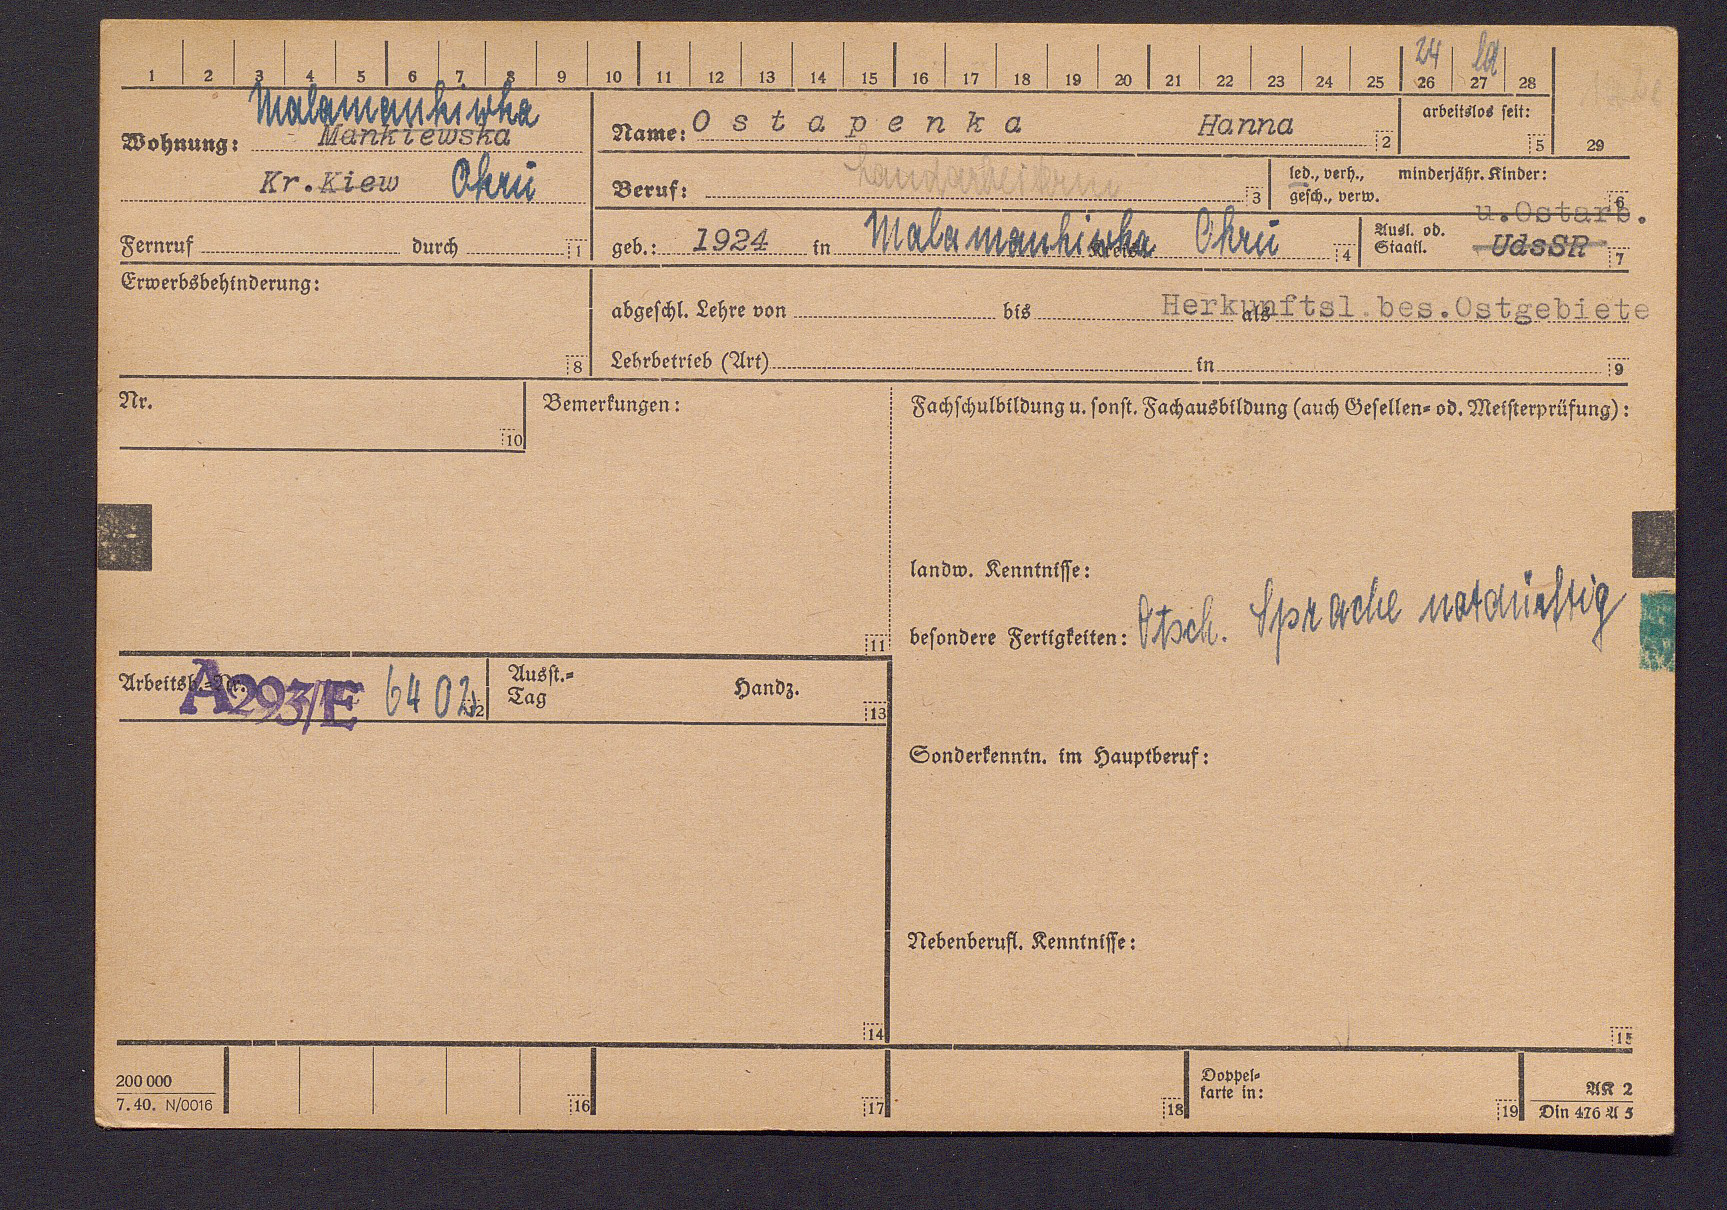 24 ld
1 2 3 4 5 6 7 8 9 10 11 12 13 14 15 16 17 18 19 20 21 22 23 24 25 26 27 28
29
Malamankiwka
Wohnung: Mankiewska
Kr. Kiew Okru
Fernruf durch 1
Name: Ostapenka Hanna 2
arbeitslos seit: 5
Beruf: Landarbeiterin 3
led., verh., minderjähr. Kinder:
gesch., verw. 6
u.Ostarb.
geb.: 1924 in Malamankiwka Okru 4
Ausl. od. Staatl. UdsSR 7
Erwerbsbehinderung: 8
Herkunftsl.bes.Ostgebiete
abgeschl. Lehre von bis als
Lehrbetrieb (Art) in 9
Nr. 10
Bemerkungen: 11
Fachschulbildung u. sonst. Fachausbildung (auch Gesellen= od. Meisterprüfung):
landw. Kenntnisse:
besondere Fertigkeiten: Dtsch. Sprache notdürftig
Arbeitsb.=Nr. A293/E 6402 12
Ausst.=
Tag Handz. 13
Sonderkenntn. im Hauptberuf:
Nebenberufl. Kenntnisse:
14 15
200 000
7. 40. N/0016
16 17 18
Doppel=
karte in: 19
AK 2
Din 476 A 5